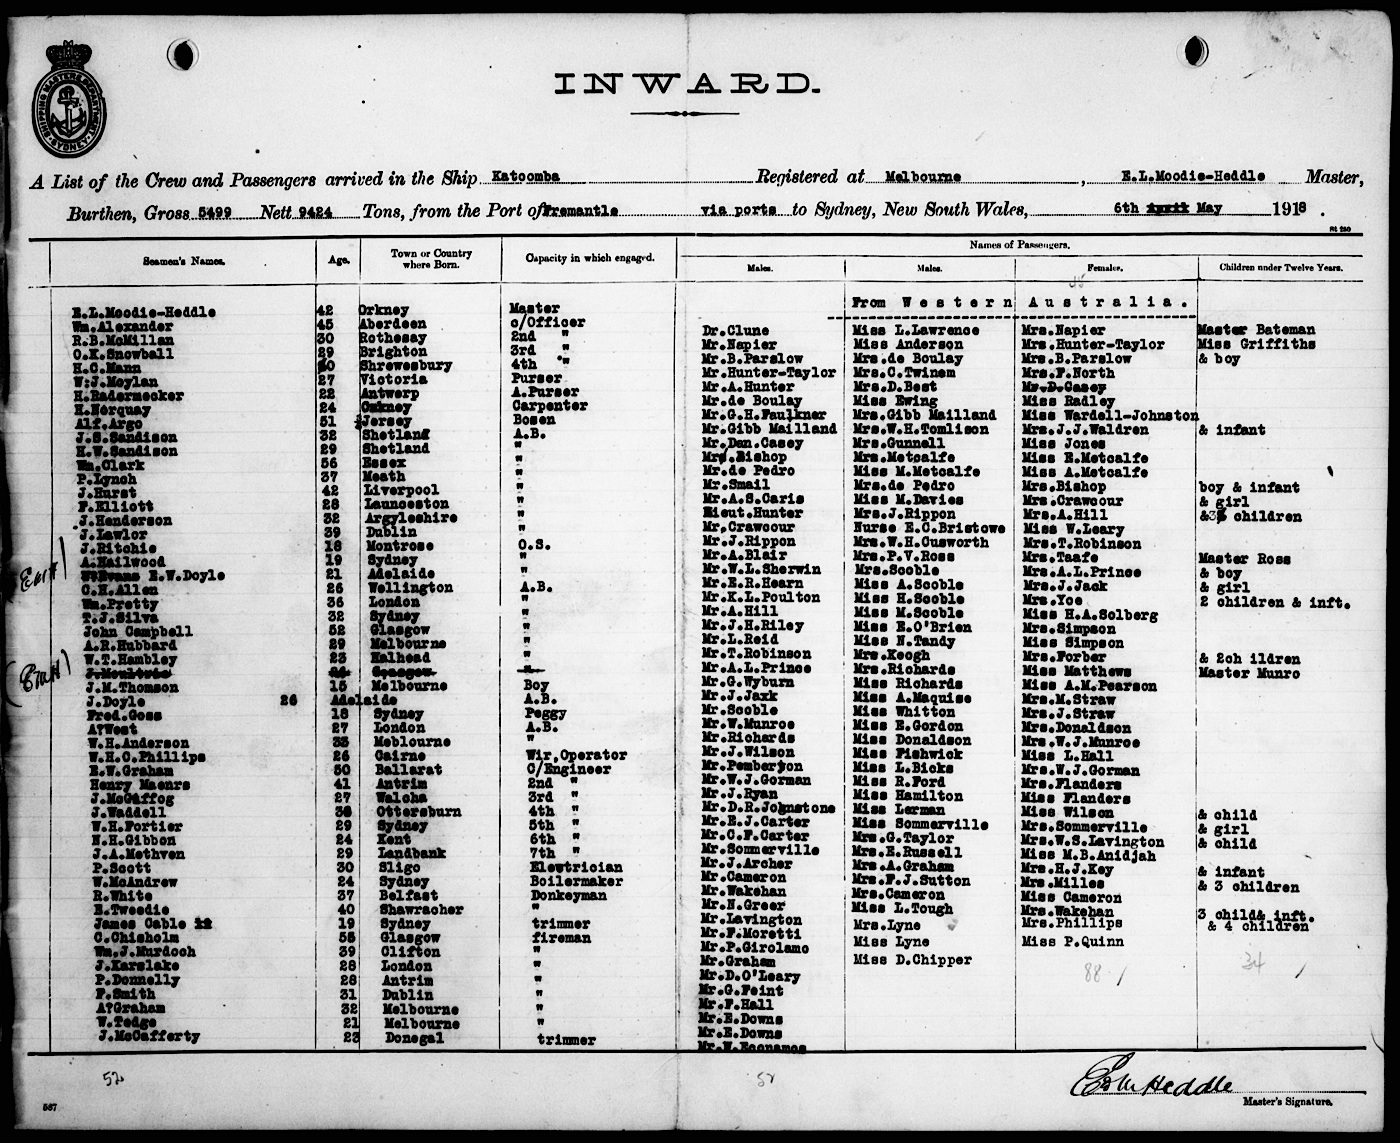 SHIPPING MASTERS DEPARTMENT SYDNEY
INWARD.
A List of the Crew and Passengers arrived in the Ship Katoomba Registered at Melbourne , E.L.Moodie-Heddle Master,
Burthen, Gross 5499 Nett 9424 Tons, from the Port of Fremantle via ports to Sydney, New South Wales, 6th April May 1918 .
St 230
Seamen's Names. Age. Town or Country where Born. Capacity in which engaged. Names of Passengers.
Males. Males. Females. Children under Twelve Years.
E.L.Moodie-Heddle 42 Orkney Master
Wm.Alexander 45 Aberdeen c/Officer
R.B.McMillan 30 Rothesay 2nd "
O.K.Snowball 29 Brighton 3rd "
H.C.Mann 30 Shrewsbury 4th "
W:J.Moylan 27 Victoria Purser
H.Radermecker 22 Antwerp A.Purser
H.Norquay 24 Orkney Carpenter
Alf.Argo 51 Jersey Bosen
J.S.Sandison 32 Shetland A.B.
H.W.Sandison 29 Shetland "
Wm.Clark 56 Essex "
P.Lynch 37 Meath "
J.Hurst 42 Liverpool "
F.Elliott 28 Launceston "
J.Henderson 32 Argyleshire "
J.Lawlor 39 Dublin "
J.Ritchie 18 Montrose O.S.
A.Hailwood 19 Sydney "
W.Evans E.W.Doyle 21 Adelaide "
C.H.Allen 26 Wellington A.B.
Wm.Pretty 36 London "
T.J.Silva 32 Sydney "
John Campbell 52 Glasgow "
A.R.Hubbard 29 Melbourne "
W.T.Hambley 23 Halhead "
J.Moultrie Glasgow "
J.M.Thomson 15 Melbourne Boy
J.Doyle 26 Adelaide A.B.
Fred.Goss 18 Sydney Peggy
A?West 27 London A.B.
W.H.Anderson 33 Meblourne "
W.H.C.Phillips 26 Cairns Wir.Operator
E.W.Graham 50 Ballarat C/Engineer
Henry Maenrs 41 Antrim 2nd "
J.McGiffog 27 Walcha 3rd "
J.Waddell Ottersburn 4th "
W.H.Fortier 29 Sydney 5th "
N.H.Gibbon 24 Kent 6th "
J.A.Methven 29 Landbank 7th "
P.Scott 30 Sligo Elewtrician
W.McAndrew 24 Sydney Boilermaker
R.White 37 Belfast Donkeyman
E.Tweedie 40 Shawracher "
James Cable 19 Sydney trimmer
C.Chisholm 55 Glasgow fireman
Wm.J.Murdoch 39 Clifton "
J.Karslake 28 London "
P.Donnelly 28 Antrim "
F.Smith 31 Dublin "
A?Graham 32 Melbourne "
W.Tedge 21 Melbourne "
J.McCafferty 23 Donegal trimmer
52
From Western Australia.
Dr.Clune Miss L.Lawrence Mrs.Napier Master Bateman
Mr.Napier Miss Anderson Mrs.Hunter-Taylor Miss Griffiths
Mr.B.Parslow Mrs.de Boulay Mrs.B.Parslow & boy
Mr.Hunter-Taylor Mrs.C.Twinem Mrs.F.North
Mr.A.Hunter Mrs.D.Best Mr.D.Casey
Mr.de Boulay Miss Ewing Miss Radley
Mr.G.H.Faulkner Mrs.Gibb Mailland Miss Wardell-Johnston
Mr.Gibb Mailland Mrs.W.H.Tomlison Mrs.J.J.Waldren & infant
Mr.Dan.Casey Mrs.Gunnell Miss Jones
Mrs.Bishop Mrs.Metcalfe Miss E.Metcalfe
Mr.de Pedro Miss M.Metcalfe Miss A.Metcalfe
Mr.Smail Mrs.de Pedro Mrs.Bishop boy & infant
Mr.A.S.Caris Miss M.Davies Mrs.Crawcour & girl
Lieut.Hunter Mrs.J.Rippon Mrs.A.Hill &3 children
Mr.Crawcour Nurse E.C.Bristowe Miss W.Leary
Mr.J.Rippon Mrs.W.H.Cusworth Mrs.T.Robinson
Mr.A.Blair Mrs.P.V.Ross Mrs.Taafe Master Ross
Mr.W.L.Sherwin Mrs.Scoble Mrs.A.L.Prince & boy
Mr.E.R.Hearn Miss A.Scoble Mrs.J.Jack & girl
Mr.K.L.Poulton Miss H.Scoble Mrs.Yoe 2 children & inft.
Mr.A.Hill Miss M.Scoble Miss H.A.Solberg
Mr.J.H.Riley Miss E.O'Brien Mrs.Simpson
Mr.L.Reid Miss N.Tandy Miss Simpson
Mr.T.Robinson Mrs.Keogh Mrs.Forber & 2ch ildren
Mr.A.L.Prince Mrs.Richards Miss Matthews Master Munro
Mr.G.Wyburn Miss Richards Miss A.M.Pearson
Mr.J.Jaxk Miss A.Maquise Mrs.M.Straw
Mr.Scoble Miss Whitton Mrs.J.Straw
Mr.W.Munroe Miss E.Gordon Mrs.Donaldson
Mr.Richards Miss Donaldson Mrs.W.J.Munroe
Mr.J.Wilson Miss Fishwick Miss L.Hall
Mr.Pemberton Miss L.Bicks Mrs.W.J.Gorman
Mr.W.J.Gorman Miss R.Ford Mrs.Flanders
Mr.J.Ryan Miss Hamilton Miss Flanders
Mr.D.R.Johnstone Miss Lerman Miss Wilson & child
Mr.E.J.Carter Miss Sommerville Mrs.Sommerville & girl
Mr.C.F.Carter Mrs.G.Taylor Mrs.W.S.Lavington & child
Mr.Sommerville Mrs.E.Russell Miss M.B.Anidjah
Mr.J.Archer Mrs.A.Graham Mrs.H.J.Key & infant
Mr.Cameron Mrs.F.J.Sutton Mrs.Milles & 3 children
Mr.Wakehan Mrs.Cameron Miss Cameron
Mr.N.Greer Miss L.Tough Mrs.Wakehan 3 child& inft.
Mr.Lavington Mrs.Lyne Mrs.Phillips & 4 children
Mr.F.Moretti Miss Lyne Miss P.Quinn
Mr.P.Girolamo Miss D.Chipper
Mr.Graham 88 34
Mr.D.O'Leary
Mr.G.Feint
Mr.F.Hall
Mr.E.Downs
Mr.E.Downs
Mr.W.Econamos
Master's Signature.
567